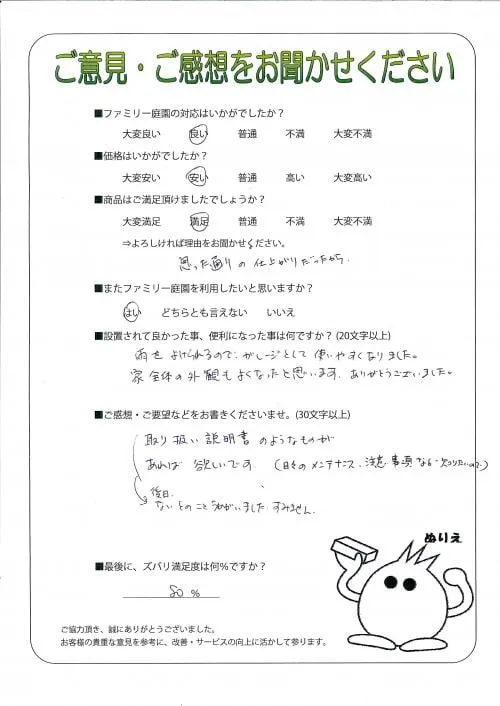 ご意見・ご感想をお聞かせください
■ファミリー庭園の対応はいかがでしたか？
大変良い 良い 普通 不満 大変不満
■価格はいかがでしたか？
大変安い 安い 普通 高い 大変高い
■商品はご満足頂けましたでしょうか？
大変満足 満足 普通 不満 大変不満
⇒よろしければ理由をお聞かせください。
思った通りの仕上がりだったから。
■またファミリー庭園を利用したいと思いますか？
はい どちらとも言えない いいえ
■設置されて良かった事、便利になった事は何ですか？(20文字以上)
雨をよけられるので、ガレージとして使いやすくなりました。
家全体の外観もよくなったと思います。ありがとうございました。
■ご感想・ご要望などをお書きくださいませ。(30文字以上)
取り扱い説明書のようなものが
あれば欲しいです (日々のメンテナンス、注意事項など知りたいので)
後日、
ないとのことうかがいました。すみません。
ぬりえ
■最後に、ズバリ満足度は何％ですか？
80 %
ご協力頂き、誠にありがとうございました。
お客様の貴重な意見を参考に、改善・サービスの向上に活かして参ります。